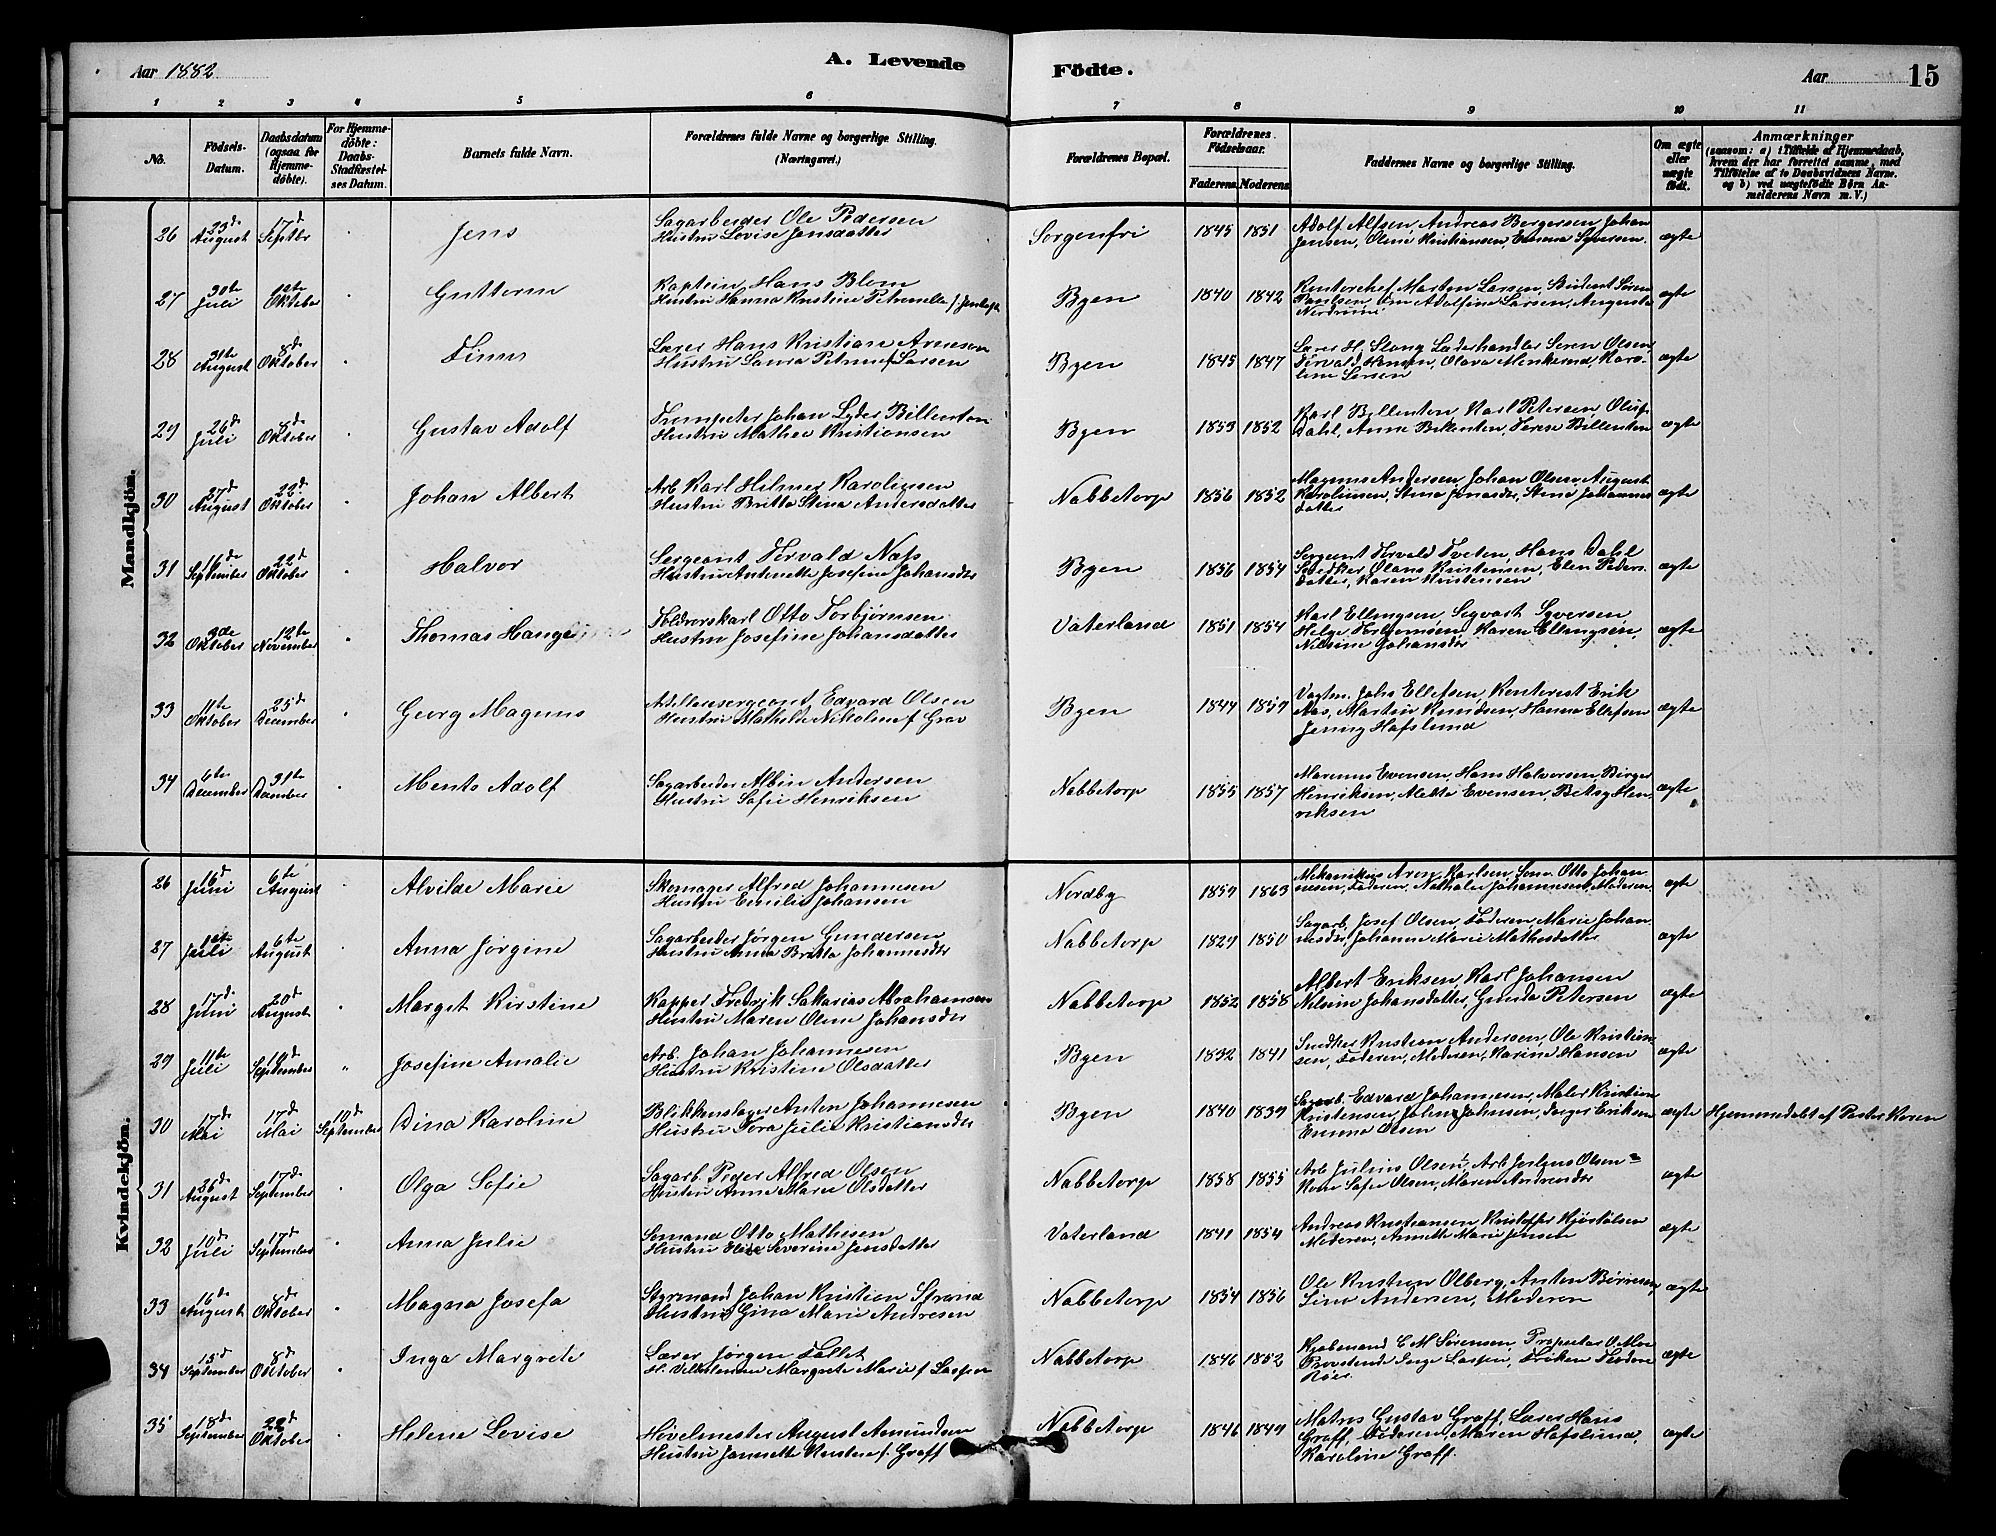 Aar 1882
A. Levende
Födte.
Aar
15
1 2 3 4 5 6 7 8 9 10 11
No.
Födsels-
Datum.
Daabsdatum
(ogsaa for
Hjemme-
döbte).
For Hjemme-
döbte:
Daabs-
Stadfæstel-
ses Datum.
Barnets fulde Navn.
Forældrenes fulde Navne og borgerlige Stilling.
(Næringsvei.)
Forældrenes Bopæl.
Forældrenes
Födselsaar.
Faderens Moderens
Faddernes Navne og borgerlige Stilling.
Om ægte
eller
uægte
födt.
Anmærkninger
(saasom: a) i Tilfælde af Hjemmedaab,
hvem der har forrettet samme, med
Tilföielse af to Daabsvidners Navne.
og b) ved uægtefödte Börn An-
melderens Navn m. V.)
Mandkjön.
26 23d August 17d Septbr Jens
Sagarbeider Ole Pedersen
Hustru Lovise Jensdatter
Sorgenfri 1845 1851
Adolf Alfsen, Andreas Bergersen, Johan
Jensen, Oline Kristiansen, Emma Syversen
ægte
27 30te Juli Oktober Guttorm
Kaptein Hans Blom
Hustru Hanna Kristine Petronelle f.
Byen 1840 1842
Kontorchef Morten Larsen, Søren
Paulsen, Adolfine Larsen, Augusta
ægte
28 31te August 8d Oktober Finn
Lærer Hans Kristian Arnesen
Hustru Laura Petrine f Larsen
Byen 1845 1847
Lærer H. Slang, Læderhandler Seren Olsen,
Torvald Hansen, Olava Karo-
line Larsen
ægte
29 26d Juli 8d Oktober Gustav Adolf
Trompeter Johan Lyder Billenton
Hustru Mathea Kristiansen
Byen 1853 1852
Karl Billenton, Karl Petersen, Oluf
Dahl, Anne Billenton, Terese Billenton
ægte
30 27d August 22d Oktober Johan Albert
Arb Karl Hilmer Karolinsen
Hustru Britta Stina Andersdatter
Nabbetorp 1856 1852
Magnus Andersen, Johan Olsen, August
Karolinsen, Stina Jonasdtr, Stina Johannes
datter
ægte
31 September 22d Oktober Halvor
Sergeant Torvald Næss
Hustru Antonette Josefine Johansdtr
Byen 1856 1854
Sergeant Torvald Tveten, Hans Dahl
Snedker Olaus Kristensen, Elen Peders
datter, Karen Kristensen
ægte
32 3de Oktober 12te November Thomas
Toldrorskarl Otto Torbjørnsen
Hustru Josefine Johansdatter
Vaterland 1851 1854
Karl Ellingsen, Sigvart Syversen,
Helge Torbjørnsen, Karen Ellingsen,
Nilsine Johansdtr
ægte
33 11te Oktober 25d December Georg Magnus
Artillerisergeant Edvard Olsen
Hustru Mathilde Nikoline f Grav
Byen 1844 1857
Vagtm. Johs Ellefsen, Kontorist Erik
Aas, Martin Knudsen, Hanna Ellefsen
Jenny Hafslund
ægte
34 6te December 31te December Mento Adolf
Sagarbeider Albin Andersen
Hustru Sofie Henriksen
Nabbetorp 1855 1857
Marenus Evensen, Hans Halvorsen, Birger
Henriksen, Alette Evensen, Betsy Hen
riksen
ægte
Kvindekjön.
26 16d Juni 6te August Alvilde Marie
Skomager Alfred Johannesen
Hustru Emilie Johansen
Nordby 1857 1863
Mekanikus Karlsen, Otto Johan
nesen, Faderen, Nathalie Johannesen, Moderen
ægte
27 Juli 6te August Anna Jørgine
Sagarbeider Jørgen Gundersen
Hustru Anna Britta Johannesdtr
Nabbetorp 1827 1850
Sagarb. Josef Olsen, Faderen, Marie Johan
nesdtr, Johanne Marie Mathisdatter
ægte
28 17d Juni 20d August Marget Kirstine
Kapper Fredrik Sakarias Abrahamsen
Hustru Maren Oline Johansdtr
Nabbetorp 1852 1858
Albert Eriksen, Karl Johansen
Nilsine Johansdatter, Gunda Petersen
ægte
29 11te Juli 10d September Josefine Amalie
Arb. Johan Johannesen
Hustru Kristine Olsdatter
Byen 1832 1841
Snedker Kristian Andersen, Ole Kristian
sen, Faderen, Moderen, Karine Hansen
ægte
30 17d Mai 17d Mai 10d September Dina Karoline
Blikkenslager Anton Johannesen
Hustru Tora Julie Kristiansdtr
Byen 1840 1839
Sagarb. Edvard Johannesen, Maler Kristian
Kristensen, Johnsen, Inger Eriksen
Emma Olsen
ægte Hjemmedøbt af Pastor Koren
31 26d August 17d September Olga Sofie
Sagarb. Peder Alfred Olsen
Hustru Anne Marie Olsdatter
Nabbetorp 1858 1855
Arb Julius Olsen, Arb Julius Olsen
Kone Sofie Olsen, Maren Andreasdtr
ægte
32 10d Juli 17d September Anna Julie
Sømand Otto Mathisen
Hustru Elise Severine Jensdatter
Vaterland 1841 1854
Andreas Kristiansen, Kristoffer Kjøstolsen
Moderen, Annette Marie Jensen
ægte
33 16d August 8d Oktober Magna Josefa
Styrmand Johan Kristian Strand
Hustru Gina Marie Andresen
Nabbetorp 1854 1856
Ole Kristian Olberg, Anton Børresen,
Lina Andersen, Moderen
ægte
34 15d September 8d Oktober Inga Margrete
Lærer Jørgen Tollet
H. Vilhelmine Margrete Marie f Laspen
Nabbetorp 1846 1852
Kjøbmand C M Sørensen, Proprietær
Inga Laspen, Frøken
ægte
35 18d September 22d Oktober Helene Lovise
Høvelmester August Amundsen
Hustru Jannette f. Graff
Nabbetorp 1846 1847
Matros Gustav Graff, Lærer Hans
Graff, Faderen, Maren Hafslund,
Karoline Graff
ægte